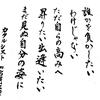 誰かを負かしたい
わけじゃない
ただ自らの高みへ
昇りたい、出逢いたい
まだ見ぬ自分の姿に